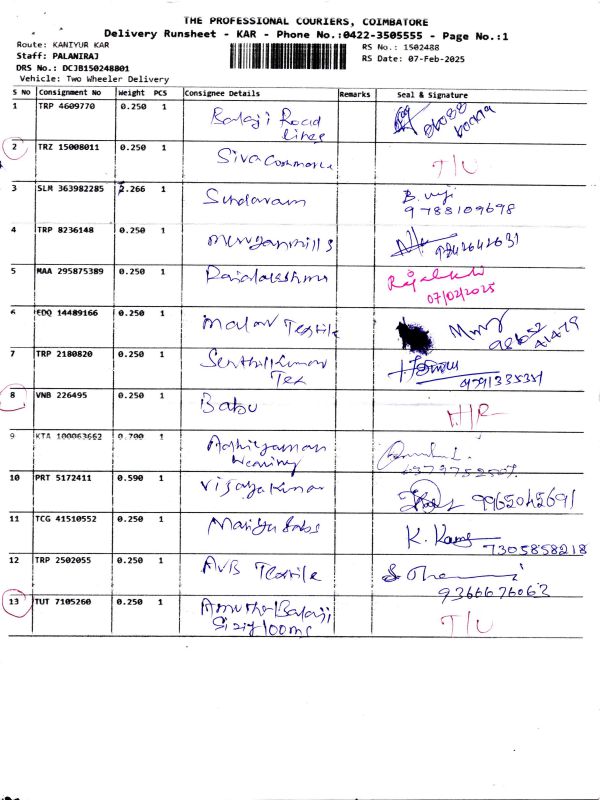 THE PROFESSIONAL COURIERS, COIMBATORE
Delivery Runsheet - KAR - Phone No.:0422-3505555 - Page No.:1
Route: KANIYUR KAR
RS No.: 1502488
Staff: PALANIRAJ
RS Date: 07-Feb-2025
DRS No.: DCJB150248801
Vehicle: Two Wheeler Delivery
S No Consignment No Weight PCS Consignee Details Remarks Seal & Signature
1 TRP 4609770 0.250 1 Balaji Road
Lines
2 TRZ 15008011 0.250 1 Siva Commerce T/U
3 SLM 363982285 2.266 1 Sundaram
9788109698
4 TRP 8236148 0.250 1 Murugan mills
5 MAA 295875389 0.250 1 Rajalakshmi
07/02/2025
6 EDQ 14489166 0.250 1 Malar Textile
7 TRP 2180820 0.250 1 Senthil Kumar
Tex
8 VNB 226495 0.250 1 Babu
9 KTA 100063662 0.700 1 Adhiyaman
10 PRT 5172411 0.590 1 Vijaya Kumar 9965045691
11 TCG 41510552 0.250 1
K. 7305858218
12 TRP 2502055 0.250 1 AVB Textile
9366676062
13 TUT 7105260 0.250 1 Balaji T/U